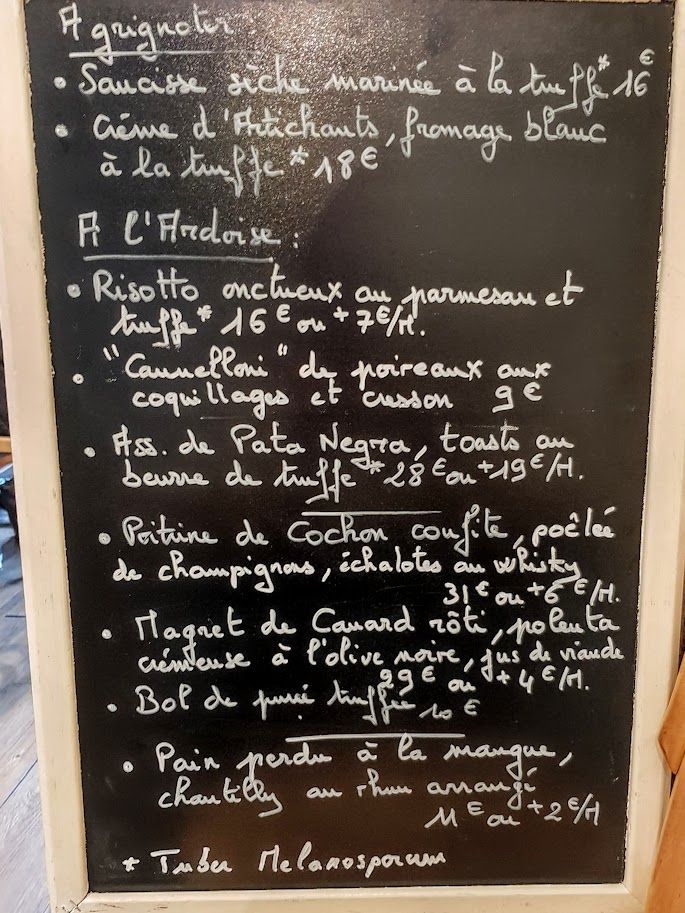 A grignoter
• Saucisse sèche marinée à la truffe* 16€
• Crème d'Artichauts, fromage blanc
à la truffe * 18€
A l'Ardoise :
• Risotto onctueux au parmesan et
truffe* 16€ ou +7€/M.
• "Cannelloni" de poireaux aux
coquillages et cresson 9€
• Ass. de Pata Negra, toasts au
beurre de truffe *28€ou +19€/M.
• Poitrine de Cochon confite, poêlée
de champignons, échalotes au whisky
31€ ou +6€/M.
• Magret de Canard rôti, polenta
crémeuse à l'olive noire, jus de viande
29€ ou +4€/M.
• Bol de purée truffée 10€
• Pain perdu à la mangue,
chantilly au rhum arrangé
11€ ou +2€/M
* Tuber Melanosporum